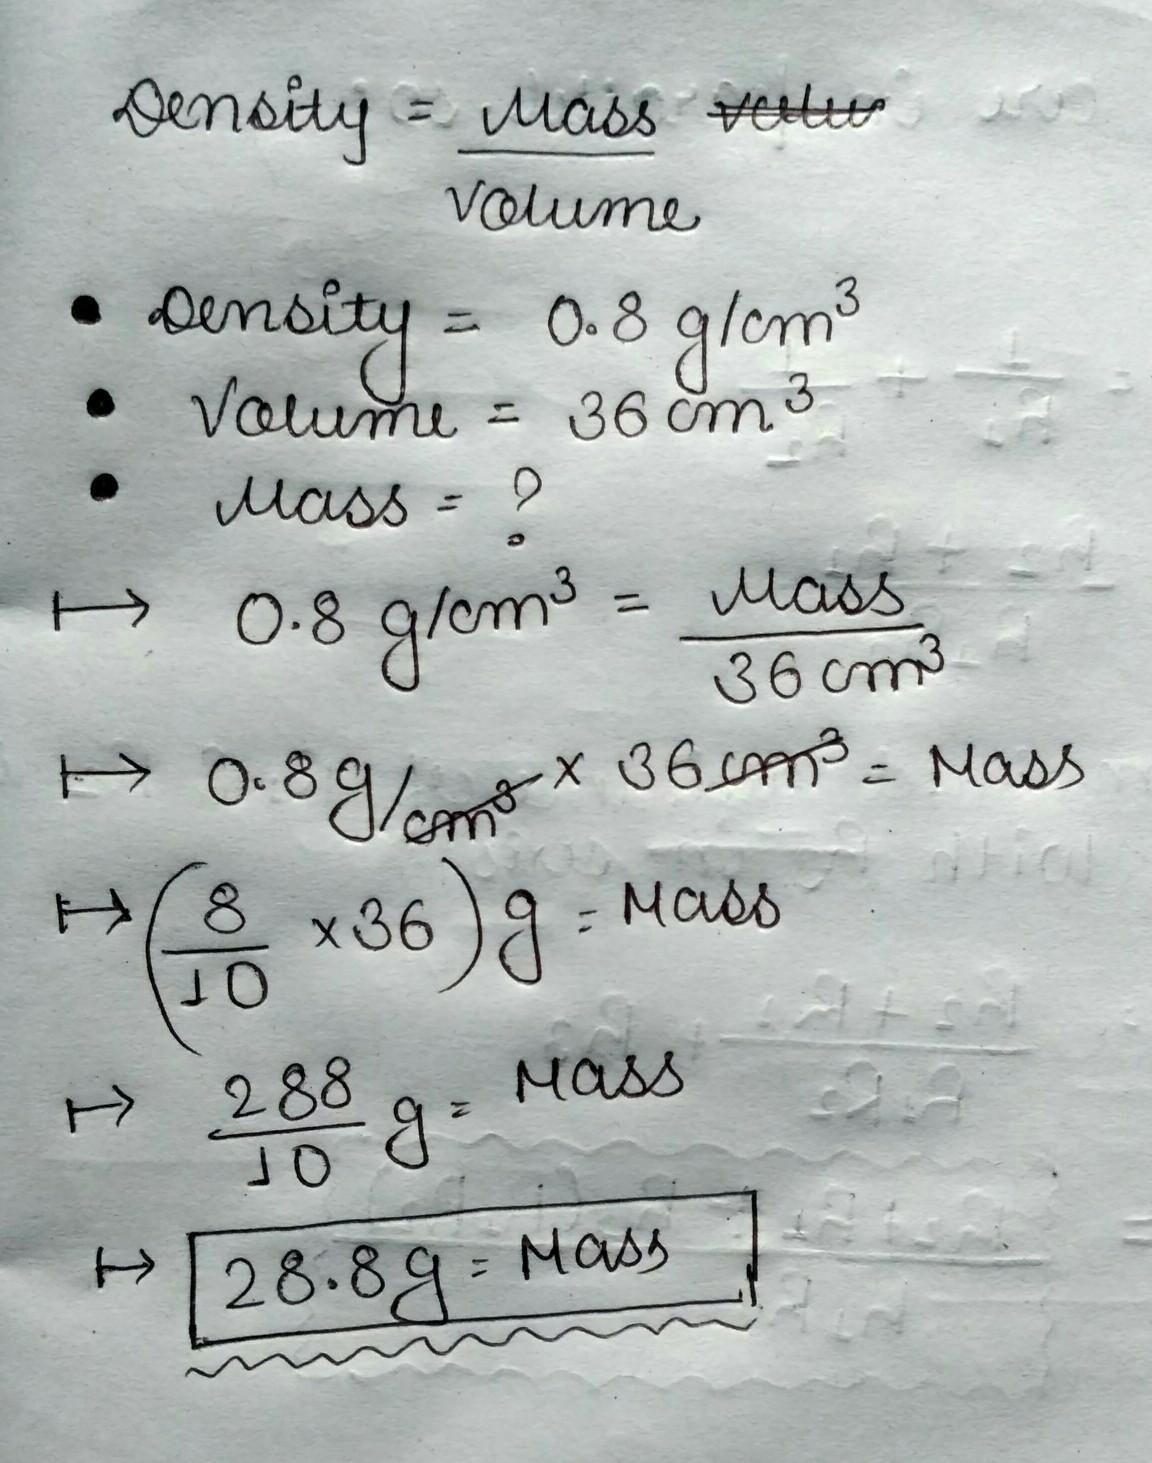 Density = Mass
Volume
• Density = 0.8 g/cm³
• Volume = 36 cm³
• Mass = ?
↦ 0.8 g/cm³ = Mass
36 cm³
↦ 0.8 g/cm³ × 36 cm³ = Mass
↦ (8/10 × 36) g = Mass
↦ 288/10 g = Mass
↦ 28.8 g = Mass